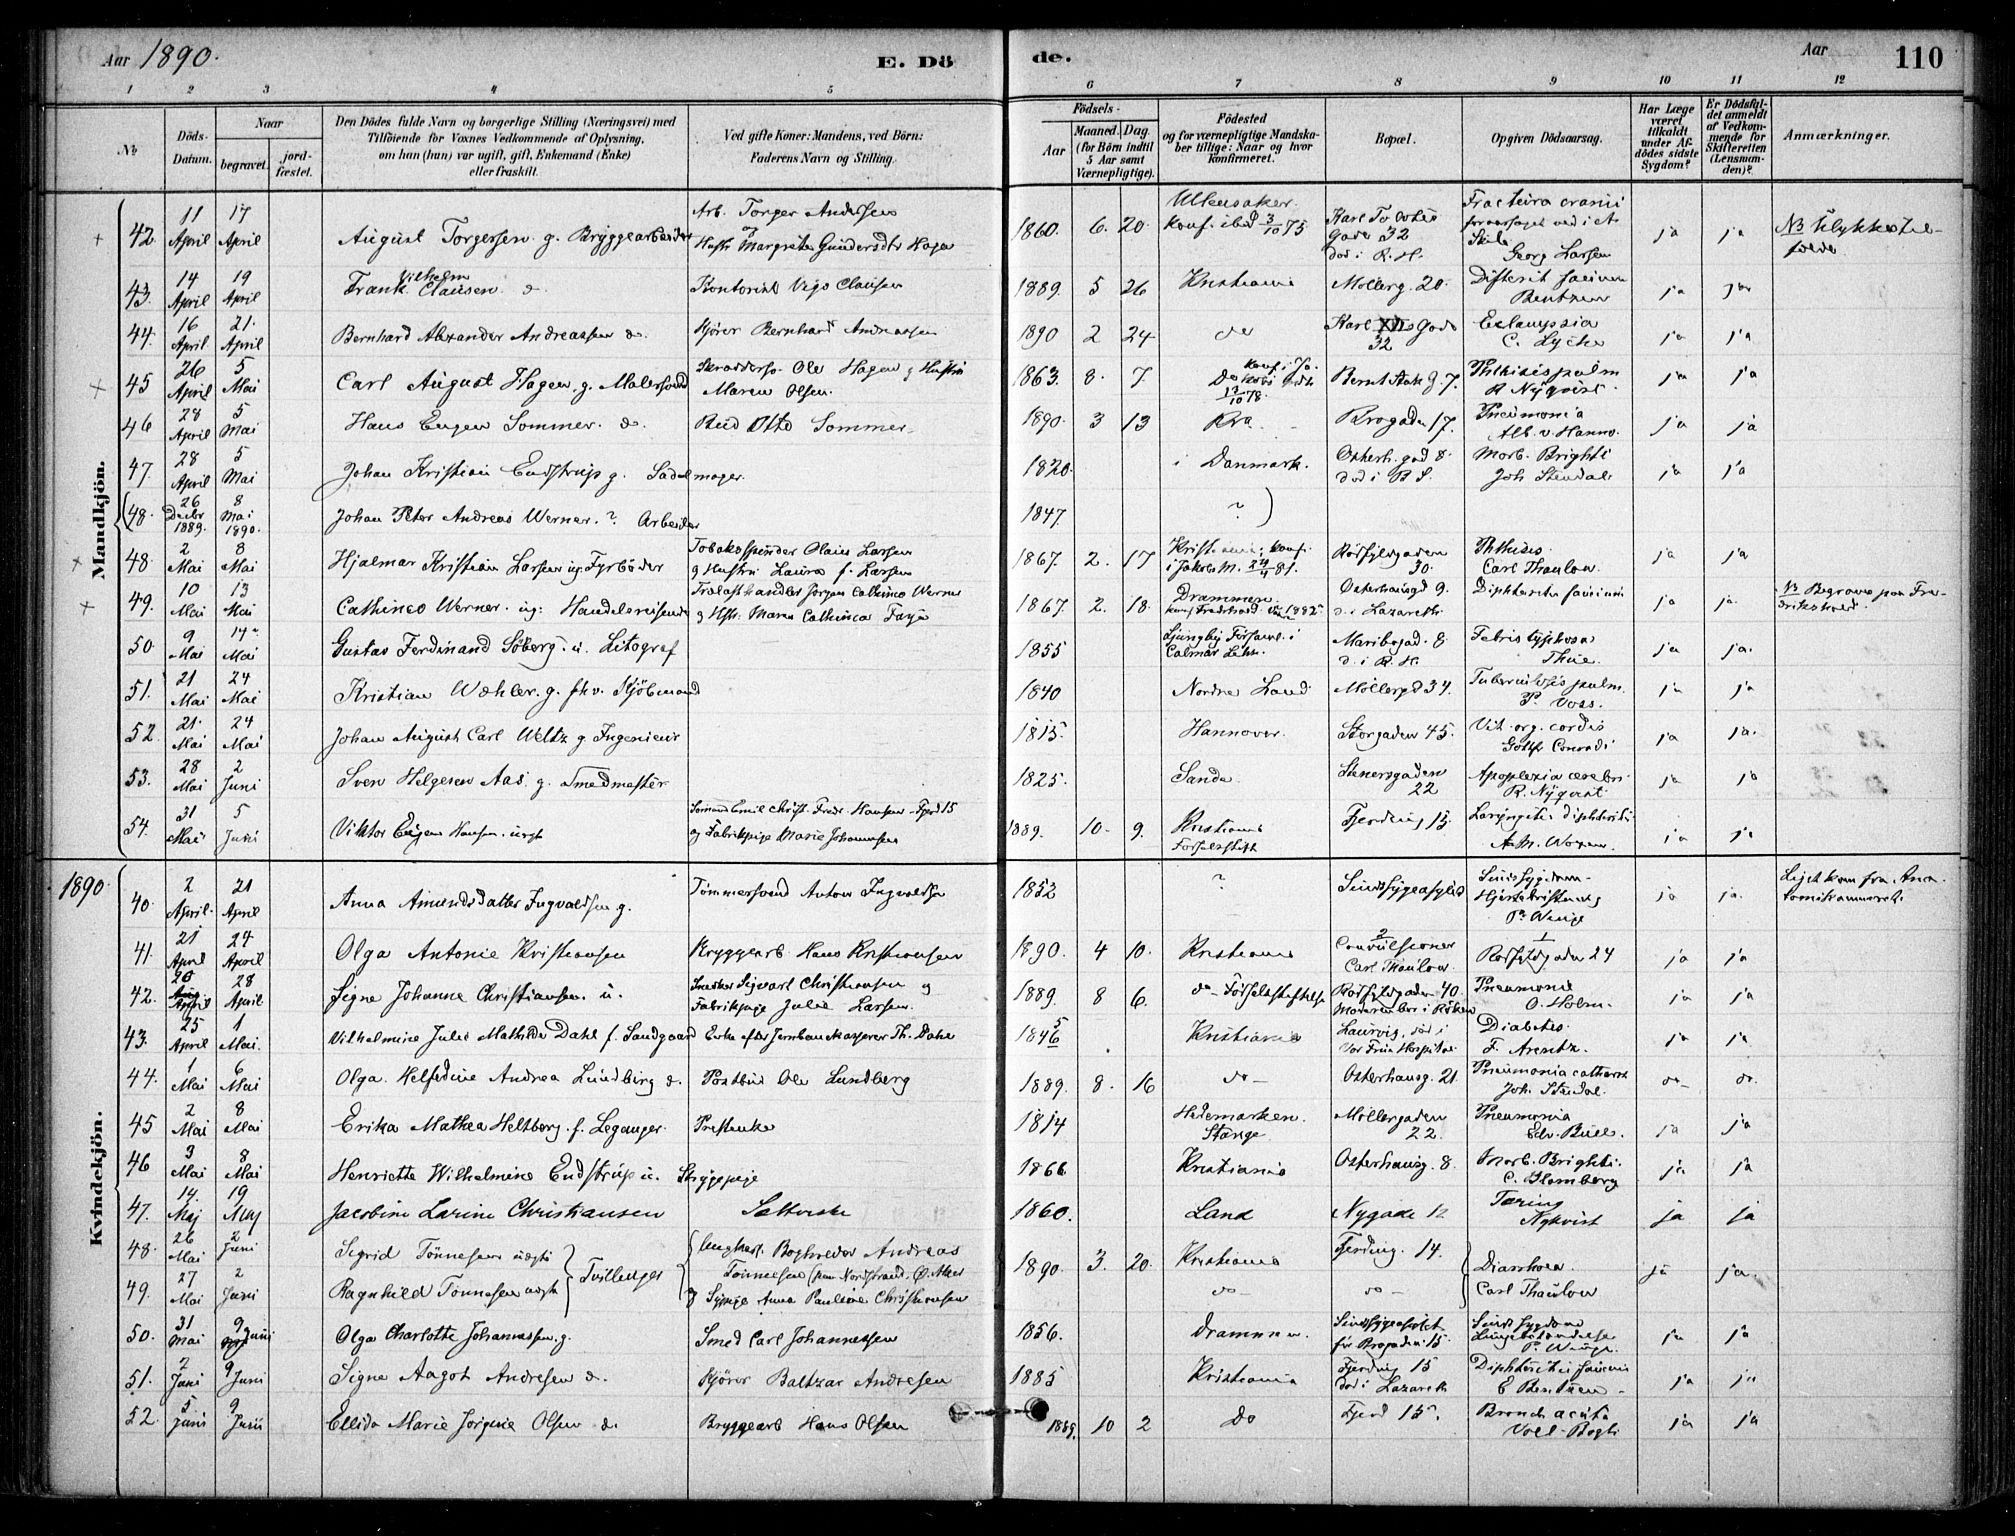 Aar 1890. E. Dö de. Aar 110
1 2 3 4 5 6 7 8 9 10 11 12
No
Döds-Datum.
Naar begravet. jordfæstet.
Den Dödes fulde Navn og borgerlige Stilling (Næringsvei) med Tilföiende for Voxnes Vedkommende af Oplysning, om han (hun) var ugift, gift, Enkemand (Enke) eller fraskilt.
Ved gifte Koner: Mandens, ved Börn: Faderens Navn og Stilling.
Födsels- Aar Maaned. Dag. (for Börn indtil 5 Aar samt Værnepligtige).
Födested og for værnepligtige Mandskaber tillige: Naar og hvor konfirmeret.
Bopæl.
Opgiven Dödsaarsag.
Har Læge været tilkaldt under Afdödes sidste Sygdom?
Er Dödsfaldet anmeldt af Vedkommende for Skifteretten (Lensmanden)?
Anmærkninger.
Mandkjön.
42. 11 April 17 April August Torgersen g. Bryggearbeider Arb. Torger Andersen og Hustr Margrete Gundersdtr Hagen 1860. 6. 20. Ullensaker. Konf. ibd 3/10 75 Karl To Gade 32 död i R. H. Fractura cranii ved et Georg Larsen ja ja NB Ulykkestilfælde
43. 14 April 19 April Frank Vilhelm Clausen d. Kontorist Vigo Clausen 1889. 5 26 Kristiania Möllerg. 20. Difterit faucium Bentzen ja ja
44. 16 April 21. April Bernhard Alexander Andreassen d. Kjörer Bernhard Andreassen 1890 2 24 do Karl XIIs Gade 32 Eclampsia C. Lyche ja ja
45 26 April 5 Mai Carl August Hagen, g. Malersvend Skrædders. Ole Hagen g Hustru Maren Olsen. 1863. 8. 7. Do konf. i Jakobs 13/10 78. Bernt Ank. g. 7. Phthisis pulm R. Nyqvist. ja ja
46 28 April 5 Mai Hans Eugen Sommer. d. Bud Otto Sommer. 1890. 3 13 Kra Brogaden 17. Pneumonia Alb. v. Hanno. ja ja
47. 28 April 5 Mai Johan Kristian Endstrup g. Sadelmager. 1820. i Danmark. Osterh. gad 8. död i B S. Morb. Brighti Joh Stendal ja ja
(48. 26 Decbr 1889. 8 Mai 1890. Johan Peter Andreas Werner. ? Arbeider 1847. ? )
48. 2 Mai 8 Mai Hjalmar Kristian Larsen ug. Fyrböder Tobaksspinder Olaus Larsen g Hustru Laura f. Larsen 1867. 2. 17 Kristiania; konf. i Jakobs M. 24/4 81. Rödfyldgaden 30. Phthisis. Carl Thaulow. ja ja
49. 10 Mai 13 Mai Cathinco Werner. ug: Handelsreisende Trælasthandler Jörgen Cathinco Werner g Hstr. Maren Cathinca Faye 1867. 2. 18. Drammen. konf. Fredrikstad 1882 Osterhausgd 9. d. i Lazareth. Diphterit faucium ja ja. NB Begraves paa Fredrikstad.
50. 9 Mai 14 Mai Gustav Ferdinand Söberg. u. Litograf 1855 Ljungby Forsaml. i Calmar Lehn. Maribogad. 8 d. i R. H. Febris typhosa Thue. ja ja.
51. 21 Mai 24 Mai Kristian Wæhler. g. fhv. Kjöbmand 1840 Nordre Land Möllergd 34. Tuberculosis pulm. P. Voss. ja ja
52. 21. Mai 24 Mai Johan August Carl Weltz g Ingenieur 1815. Hannover. Storgaden 45. Vit. org. cordis Gottfr Conradi ja ja.
53. 28 Mai 2 Juni Sven Helgesen Aas. g. Smedmester 1825. Sande. Stenersgaden 22 Apoplexia cerebri. R. Nyqvist ja ja
54. 31 Mai 5 Juni Viktor Eugen Hansen. uegt Sömand Emil Christ. Fredr. Hansen Fjerd 15 og Fabrikpige Marie Johannsen 1889. 10. 9. Kristiania Födselsstift Fjerding 15. Laryngitis diphterit. ja ja
1890
Kvindekjön.
40. 2 April. 21 April Anna Amundsdatter Ingvaldsen g. Tömmersvend Anton Ingvaldsen 1852 ? Sindssygeasylet Sindssygdom Hjertebristning P. Winge ja ja. Liget kom fra Anatomikammeret.
41. 21 April 24 April Olga Antonie Kristiansen Bryggearb. Hans Kristiansen 1890. 4 10. Kristiania 2 Convulsioner Carl Thaulow. 1 Rödfyldgaden 24 ja ja
42. 20 April 28 April Signe Johanne Christiansen. u. Snedker Sigvart Christiansen og Fabrikpige Julie Larsen. 1889. 8 6. do- Födselsstiftelse Rödfyldgaden 40. Moderen bor i Röken Pneumonia O. Holm. ja ja
43. 25 April 1 Mai. Vilhelmine Julie Mathilde Dahl f. Sandgaard Enke efter Jernbanekasserer Th. Dahl 1846 5 Kristiania Laurvig, död i Vor Frue Hospital Diabetes. F. Arentz. ja ja
44. 1 Mai 6 Mai Olga. Helfedine Andrea Lundberg d. Postbud Ole Lundberg 1889. 8. 16 do- Osterhausg. 21. Pneumonia catharr Joh. Stendal. do- do.
45 2 Mai 8 Mai Erika Mathea Heltberg. f. Leganger. Presteenke 1814 Hedemarken. Stange. Möllergaden 22. Pneumonia Edv. Bull. ja ja
46 3 Mai 8 Mai Henriette Wilhelmine Endstrup u. Strygepige 1866 Kristiania Osterhausg. 8. Morb. Brighti. C. Blomberg ja ja
47. 14. Maj 19 Maj Jacobine Larine Christiansen 1860. Land Nygade 12 Tæring Nykvist ja ja
48. 26 Mai 2 Juni Sigrid Tönnesen uægte Tvillinger Ungkarl. Boghandler Andreas Tönnesen (paa Nordstrand. Ö. Aker 1890. 3. 20. Kristiania Fjerding. 14. Diarrhoea. Carl Thaulow ja ja
49. 27 Mai 2 Juni Ragnhild Tönnesen uegte og Sypige Anna Pauline Christiansen do- do-
50. 31 Mai 9 Juni Olga Charlotte Johannessen. g. Smed Carl Johannessen 1856. Drammen. Sindssygeasylet för Brogaden 15. Sindssygdom Lungebetændelse P. Winge. ja ja
51. 2 Juni 9 Juni Signe Aagot Andresen d. Kjörer Baltzar Andresen 1885 Kristiania Fjerding 15 död i Lazareth Diphterit faucium E Bentzen - ja ja
52. 5 Juni 9 Juni Ellida Marie Jörgine Olsen d. Bryggearb Hans Olsen 1889. 10 2 Do Fjerd 15. Bronch acuta ja ja